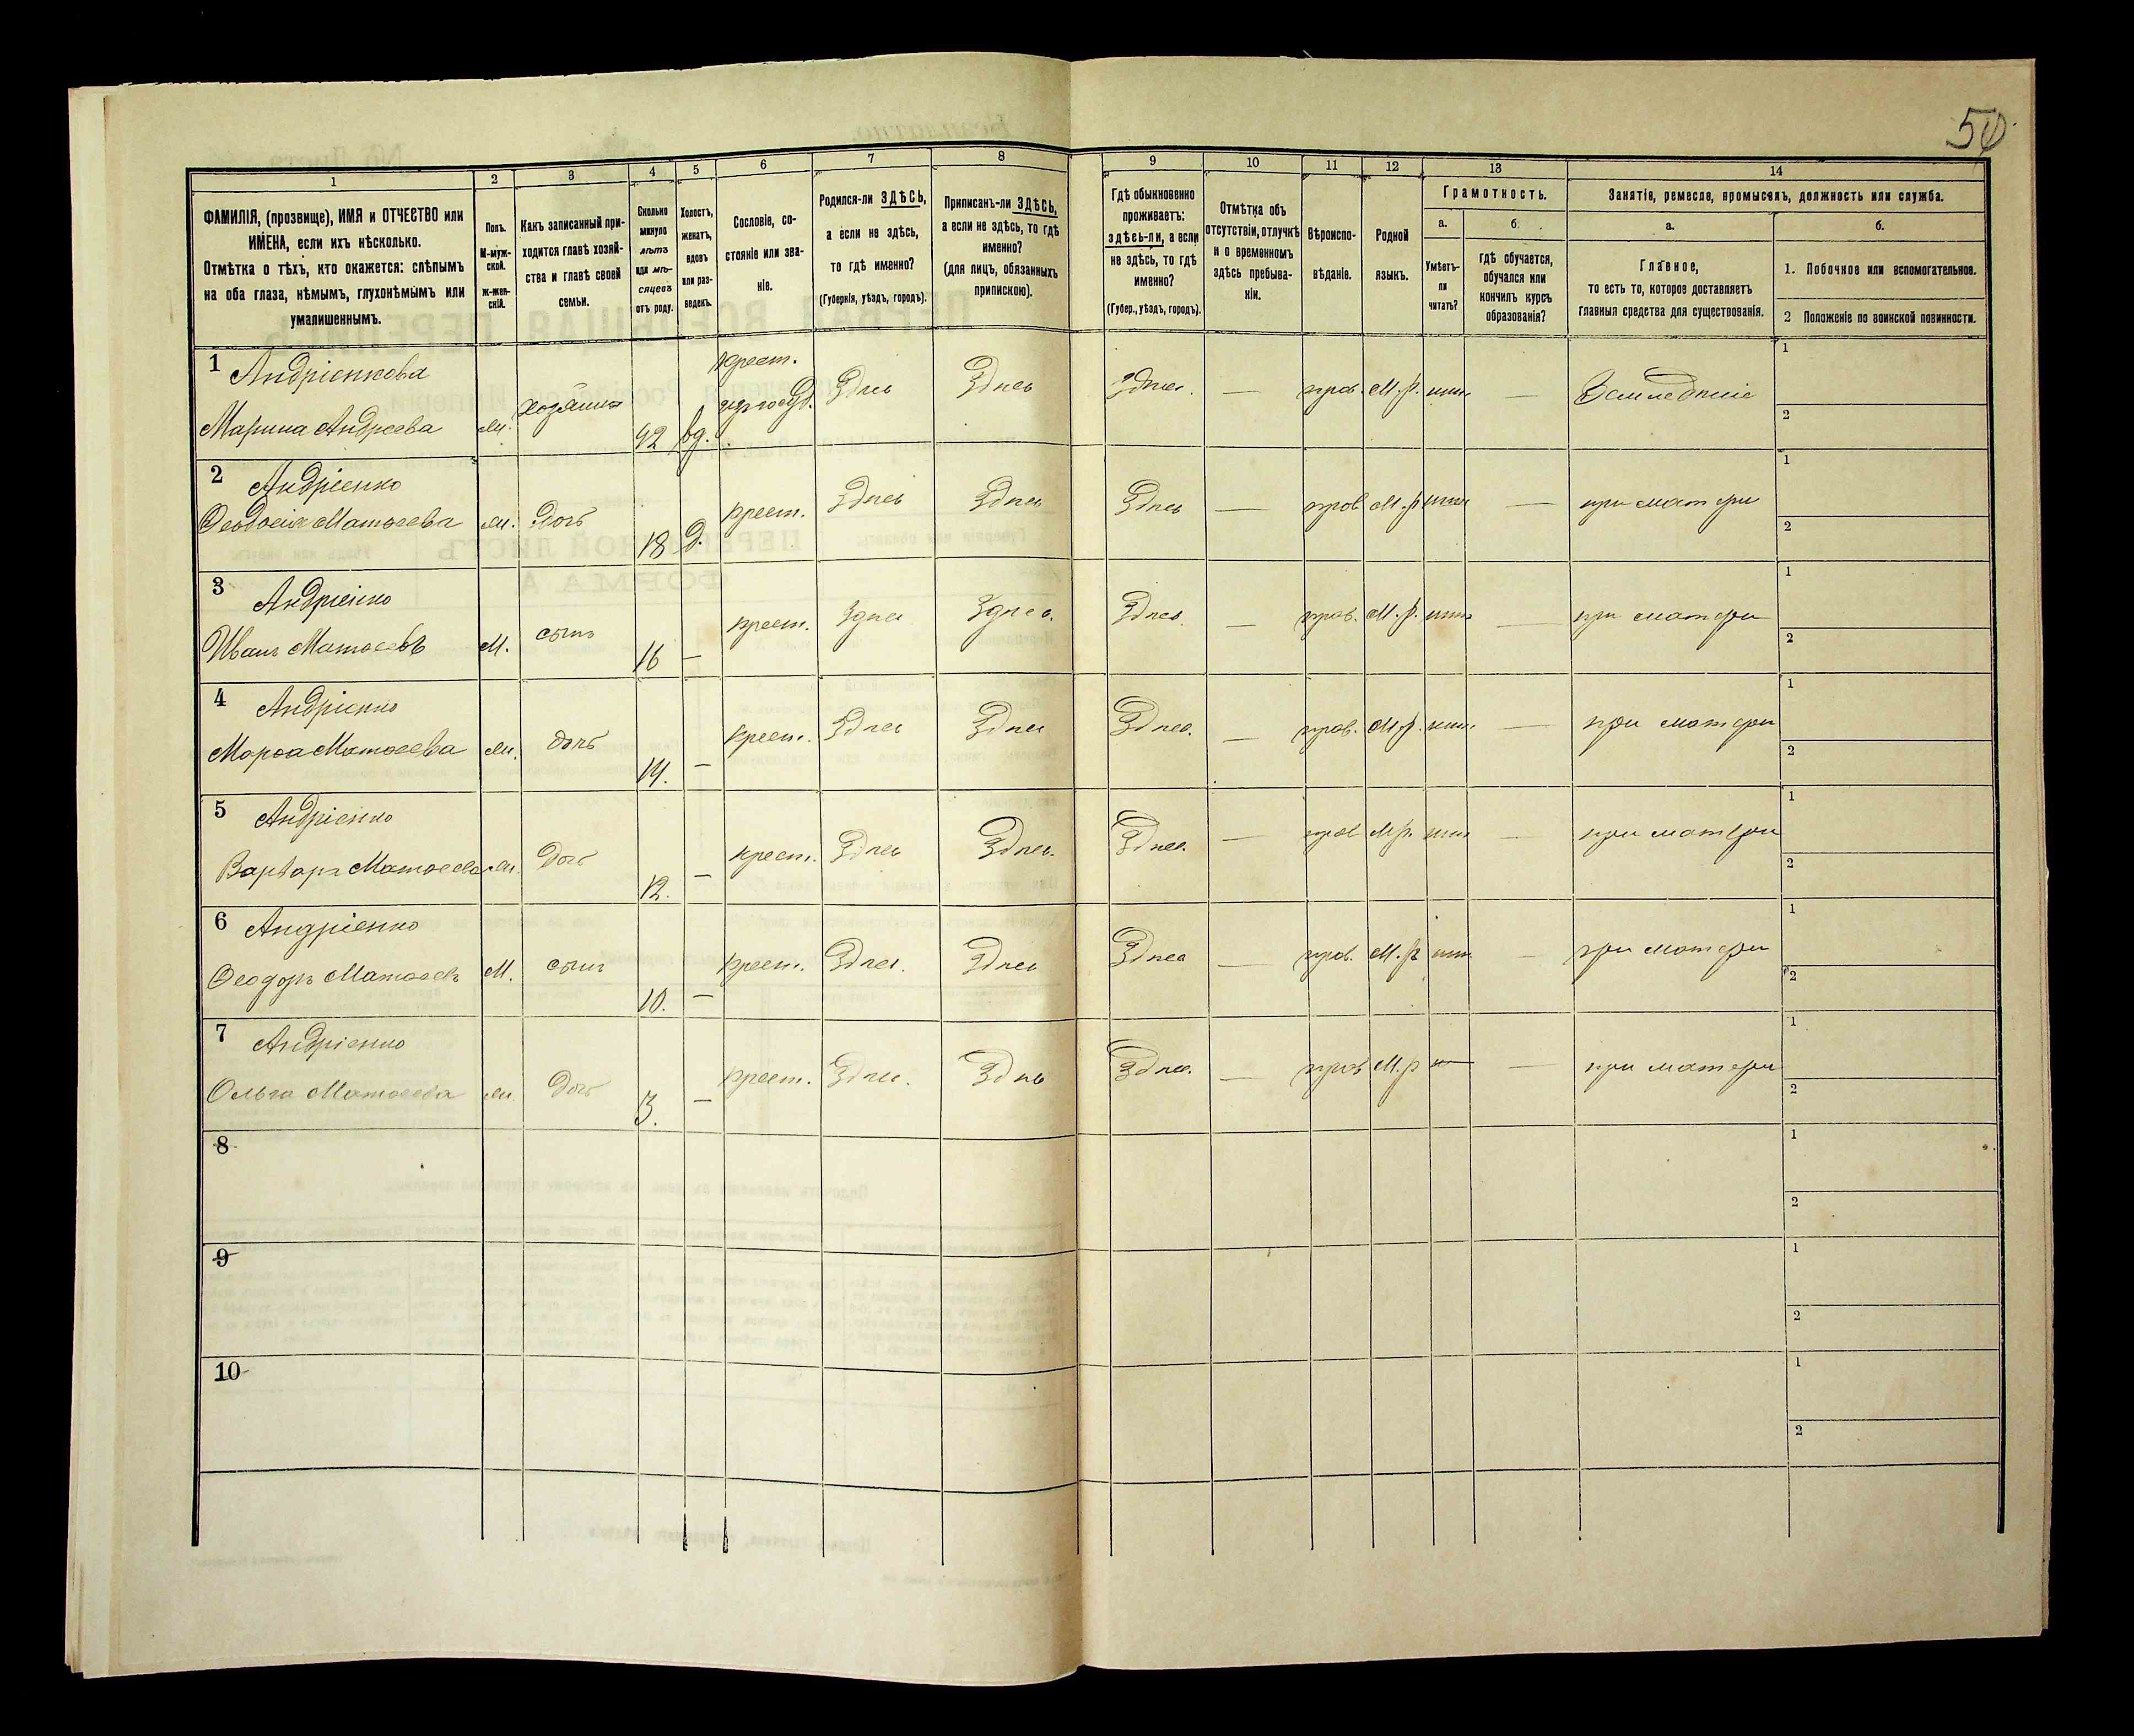 50
1 2 3 4 5 6 7 8 9 10 11 12 13 14
ФАМИЛІЯ, (прозвище), ИМЯ и ОТЧЕСТВО или
ИМЕНА, если ихъ нѣсколько.
Отмѣтка о тѣхъ, кто окажется: слѣпымъ
на оба глаза, нѣмымъ, глухонѣмымъ или
умалишеннымъ.
Полъ.
М-муж-
ской.
ж-жен-
скій.
Какъ записанный при-
ходится главѣ хозяй-
ства и главѣ своей
семьи.
Сколько
минуло
лѣтъ
или мѣ-
сяцевъ
отъ роду.
Холостъ,
женатъ,
вдовъ
или раз-
веденъ.
Сословіе, со-
стояніе или зва-
ніе.
Родился-ли ЗДѢСЬ,
а если не здѣсь,
то гдѣ именно?
(Губернія, уѣздъ, городъ).
Приписанъ-ли ЗДѢСЬ,
а если не здѣсь, то гдѣ
именно?
(для лицъ, обязанныхъ
припискою).
Гдѣ обыкновенно
проживаетъ:
здѣсь-ли, а если
не здѣсь, то гдѣ
именно?
(Губер., уѣздъ, городъ).
Отмѣтка объ
отсутствіи, отлучкѣ
и о временномъ
здѣсь пребыва-
ніи.
Вѣроиспо-
вѣданіе.
Родной
языкъ.
Грамотность.
а.
Умѣетъ-
ли
читать?
б.
гдѣ обучается,
обучался или
кончилъ курсъ
образованія?
Занятія, ремесло, промыселъ, должность или служба.
а.
Главное,
то есть то, которое доставляетъ
главныя средства для существованія.
б.
1. Побочное или вспомогательное.
2 Положеніе по воинской повинности.
1 Андріенкова крест. 1
Марина Андреева хозяйка 42 вд. Здѣсь Здѣсь Здѣсь. — прав. М.р. — Земледѣліе 2
2 Андріенко 1
Ѳеодосія Матѳеева дочь 18 д. крест. Здѣсь Здѣсь Здѣсь — прав М.р — при матери 2
3 Андріенко 1
Иванъ Матѳеевъ М. сынъ 16 — крест. Здѣсь Здѣсь. Здѣсь. — прав. М.р. — при матери 2
4 Андріенко 1
Марѳа Матѳеева дочь 14. — крест. Здѣсь Здѣсь Здѣсь. — прав. М.р. — при матери 2
5 Андріенко 1
Варвара Матѳеева дочь 12. — крест. Здѣсь Здѣсь. Здѣсь. — прав М.р. — при матери 2
6 Андріенко 1
Ѳеодоръ Матѳеевъ М. сынъ 10. — крест. Здѣсь. Здѣсь Здѣсь — прав. М.р — при матери 2
7 Андріенко 1
Ольга Матѳеева дочь 3. — крест. Здѣсь. Здѣсь Здѣсь. — прав М.р — при матери 2
8 1
2
9 1
2
10 1
2